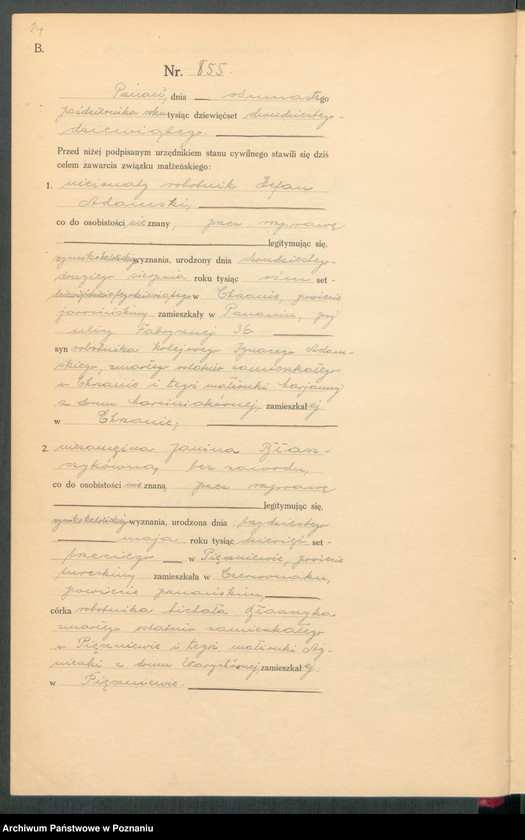 14
B.
Nr. 855.
Poznań, dnia ośmnastego
października roku tysiąc dziewięćset dwudziestego
dziewiątego.
Przed niżej podpisanym urzędnikiem stanu cywilnego stawili się dziś
celem zawarcia związku małżeńskiego:
1. nieżonaty robotnik Stefan
Adamski,
co do osobistości nieznany, przez rozprawę
legitymując się,
rzymskokatolickiego wyznania, urodzony dnia dwudziestego
drugiego sierpnia roku tysiąc ośm set
dziewięćdziesiątego dziewiątego w Chrzanie, powiecie
jarocińskim, zamieszkały w Poznaniu, przy
ulicy Fabrycznej 36.
syn robotnika kolejowego Ignacego Adam-
skiego, zmarłego ostatnio zamieszkałego
w Chrzanie i tegoż małżonki Marjanny
z domu Marciniakównej, zamieszkałej
w Chrzanie;
2. niezamężna Janina Błasz-
czykówna, bez zawodu,
co do osobistości nieznana, przez rozprawę
legitymując się,
rzymskokatolickiego wyznania, urodzona dnia trzydziestego
maja roku tysiąc dziewięć set
trzeciego w Pięczniewie, powiecie
tureckim zamieszkała w Czerwonaku,
powiecie poznańskim,
córka robotnika Michała Błaszczyka
zmarłego ostatnio zamieszkałego
w Pięczniewie i tegoż małżonki Ag-
nieszki z domu zamieszkałej
w Pięczniewie.
Archiwum Państwowe w Poznaniu